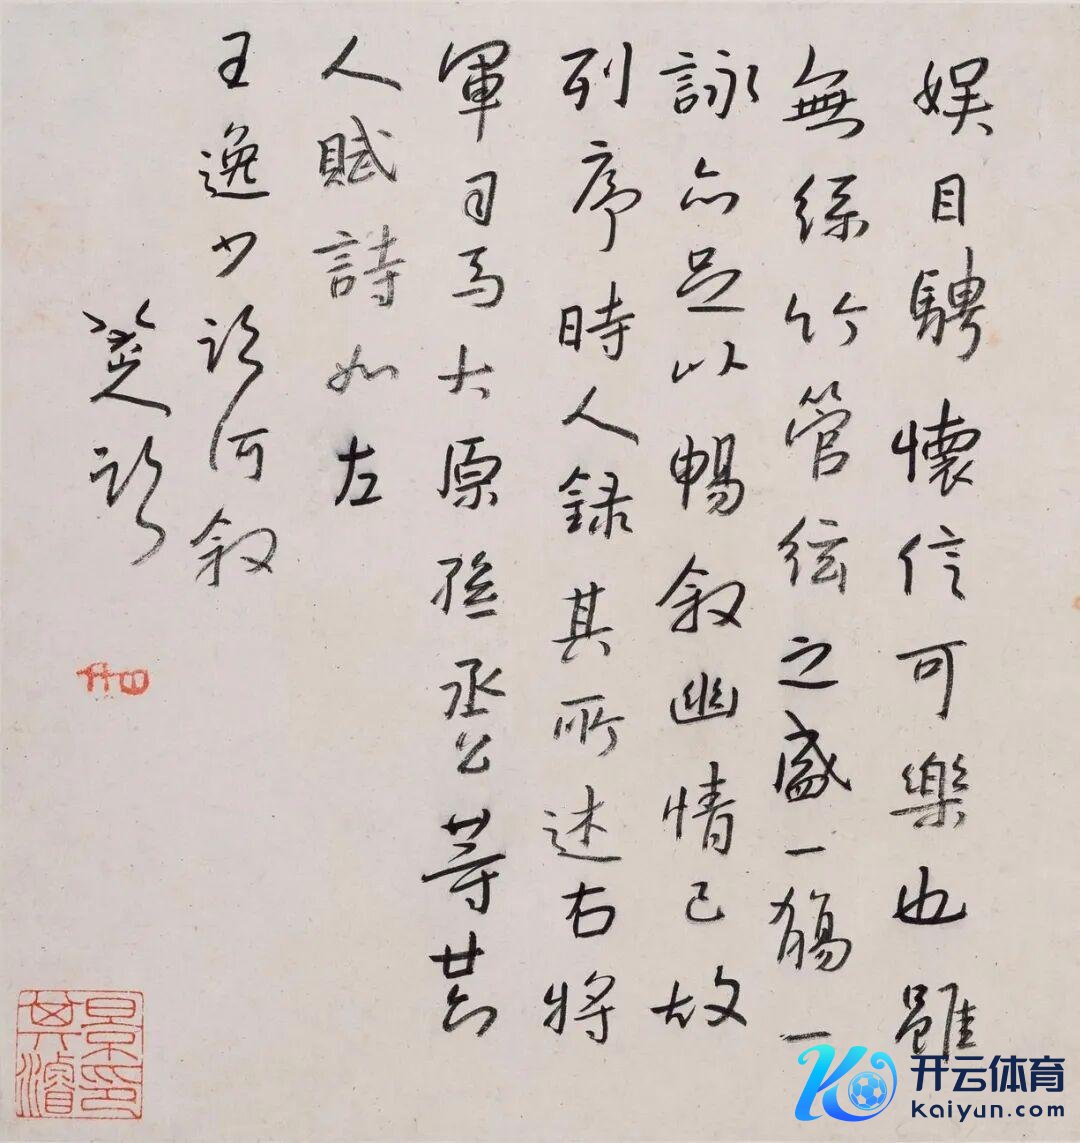 娱目騁懷信可樂也雖
無絲竹管絃之盛一觴一
詠亦足以暢敘幽情已故
列序時人録其所述右將
軍司馬大原孫丞公等廿六
人賦詩如左
王逸少臨河叙
八大山人臨
景印其濬
开云体育
kaiyun.com